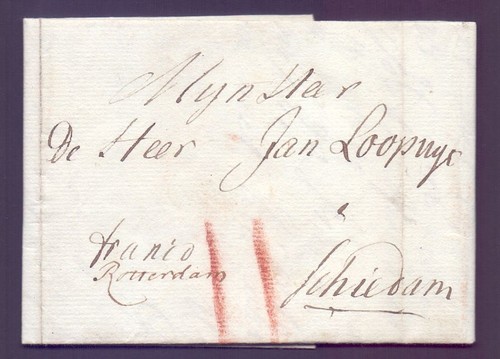 Mynheer
De Heer Jan Loopuyt
franco
Rotterdam
Schiedam